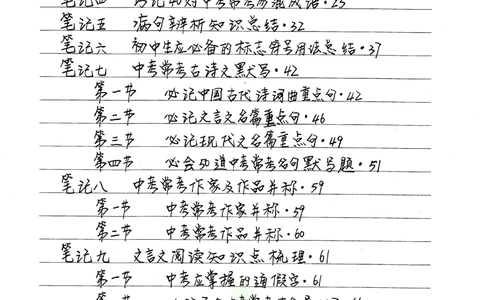 笔记四 必记40对中考常考易混成语·25
笔记五 病句辨析知识总结·32
笔记六 初中生应必备的标点符号用法总结·37
笔记七 中考常考古诗文默写·42
第一节 必记中国古代诗词曲重点句·42
第二节 必记文言文名篇重点句·46
第三节 必记现代文名篇重点句·49
第四节 必会知道中考常考名句默写题·51
笔记八 中考常考作家及作品并称·59
第一节 中考常考作家并称·59
第二节 中考常考作品并称·60
笔记九 文言文阅读知识点梳理·61
第一节 中考应掌握的通假字·61